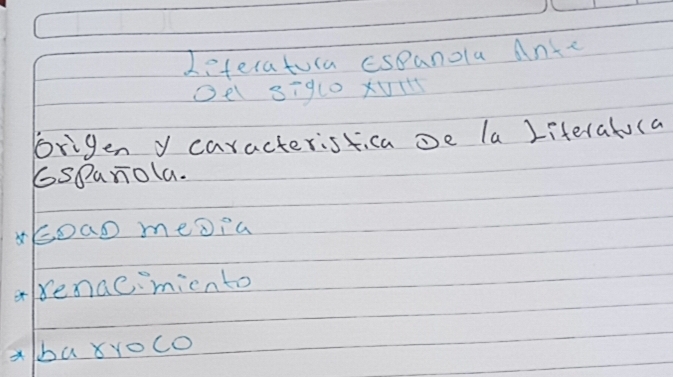 Literatura Española Ante
Del siglo XVIII
Origen y caracteristica De la Literatura
Española.
* EDAD media
* renacimiento
* barroco